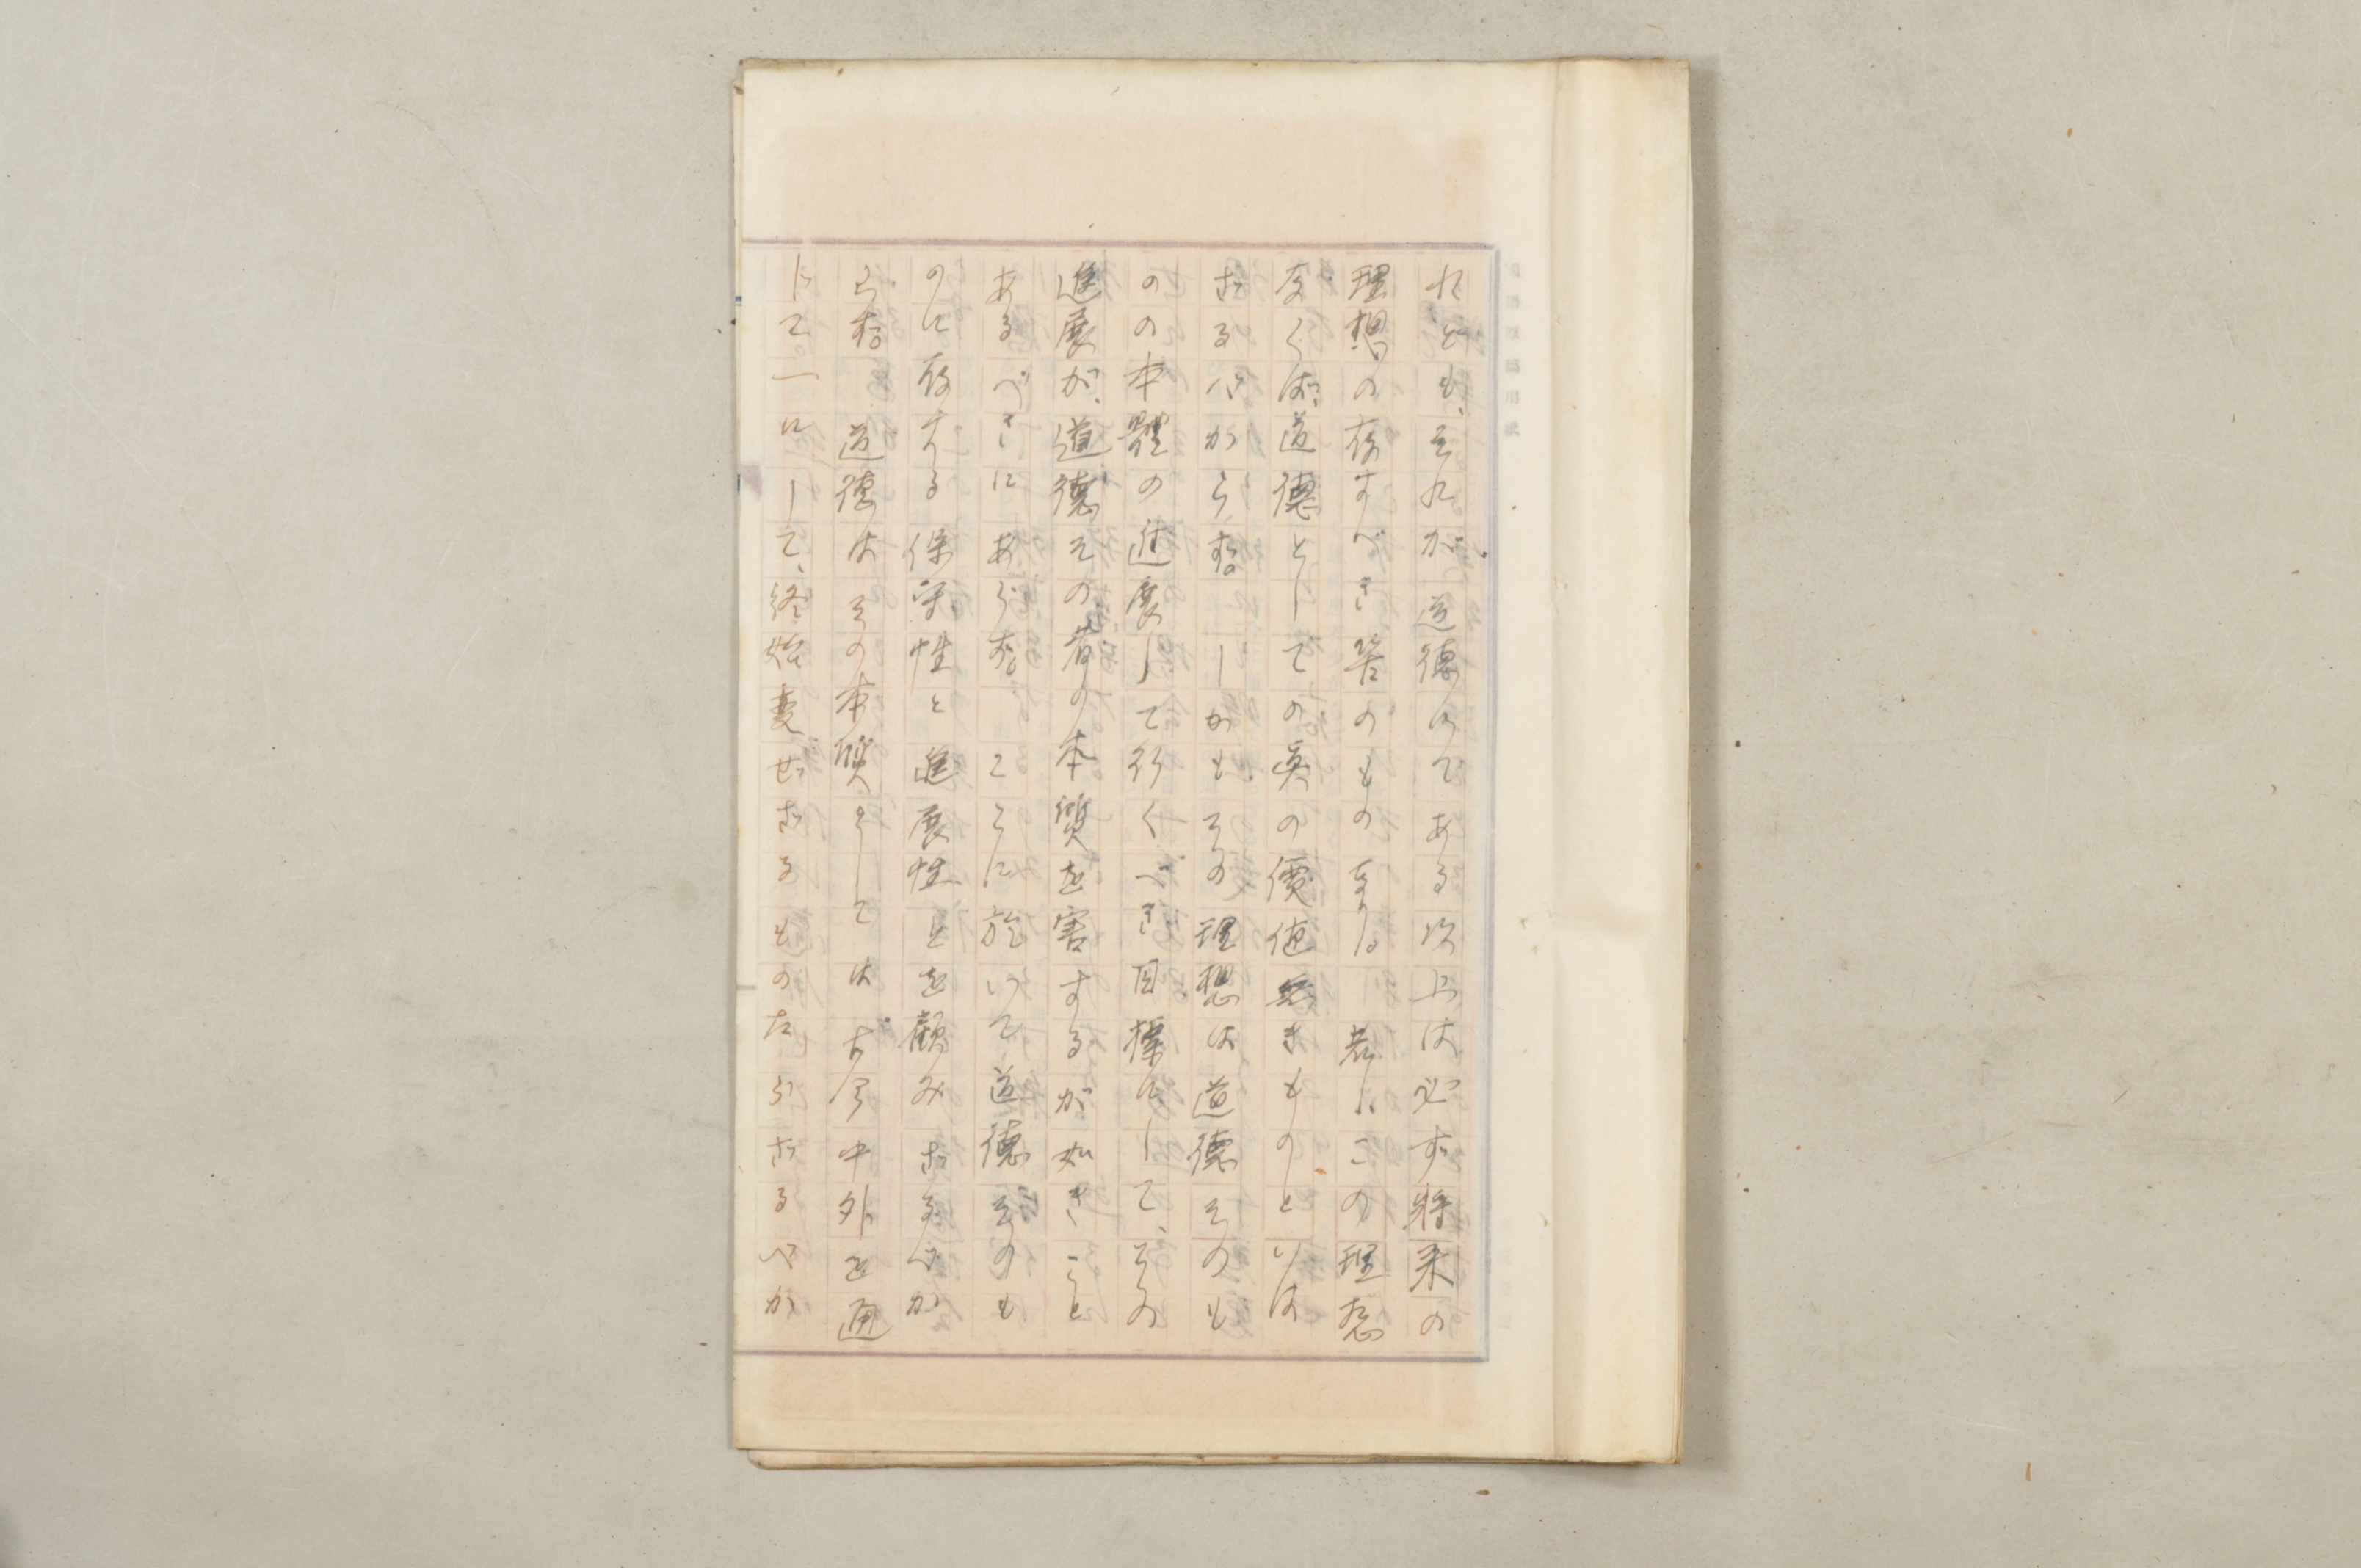 れども、それが道德のである以上は必ず將来の
理想の存すべき筈のものなり。若しこの理想
なくば、道德としての眞の價値無きものといは
ざるべからず。しかもその理想は道德そのも
のの本體の進展して行くべき目標にして、その
進展が、道德その者の本質を害するが如きこと
あるべきにあらず。ここに於いて、道德そのも
のに存する保守性と進展性とを顧みざるべか
らず。道德はその本質としては古今中外を通
じて一にして、終始變せざるものたらざるべか